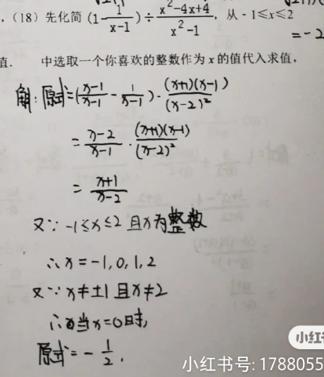 (18) 先化简 (1-1/(x-1))÷(x²-4x+4)/(x²-1), 从 -1≤x≤2
= -2
值. 中选取一个你喜欢的整数作为 x 的值代入求值,
解:原式=((x-1)/(x-1) - 1/(x-1))·((x+1)(x-1))/(x-2)²
= (x-2)/(x-1)·((x+1)(x-1))/(x-2)²
= (x+1)/(x-2)
又∵ -1≤x≤2 且x为整数
∴x=-1,0,1,2
又∵x≠±1且x≠2
∴当x=0时,
原式=-1/2.
小红书
小红书号: 1788055